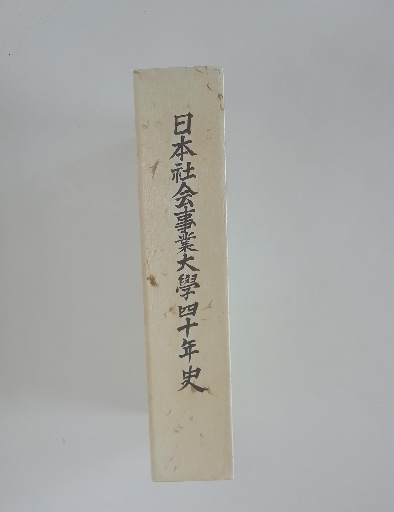 日本社会事業大學四十年史